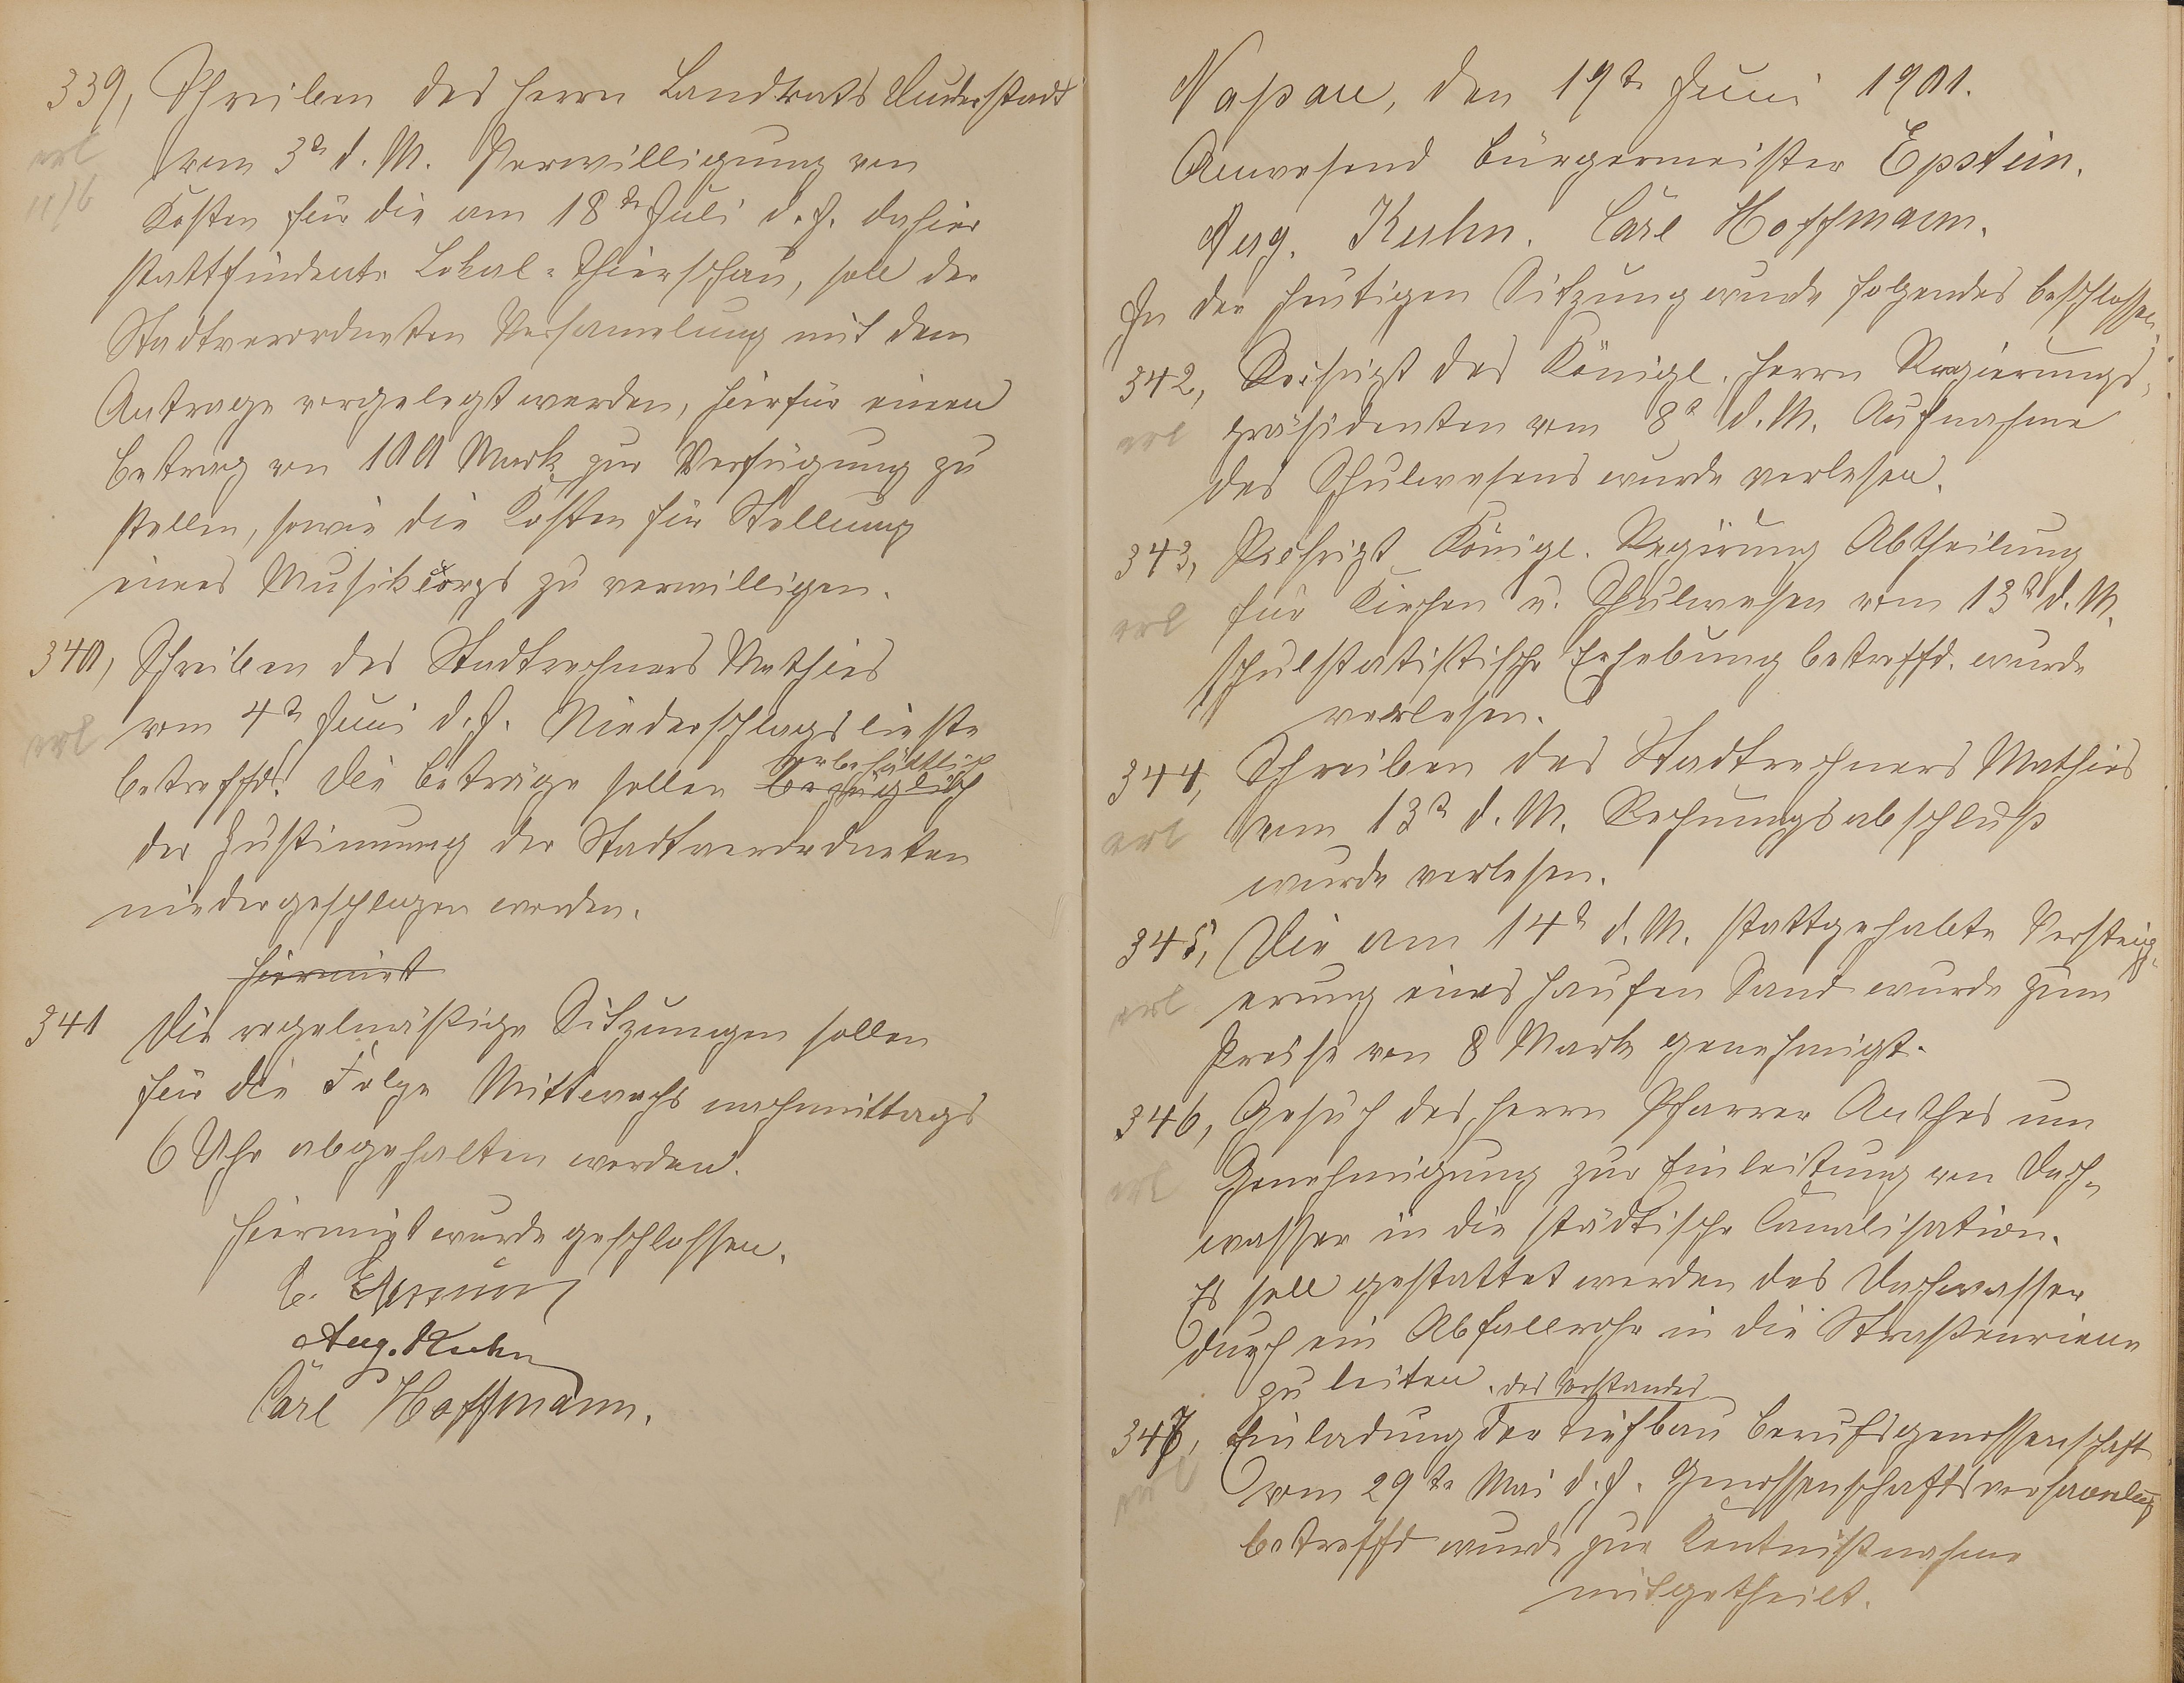 339, Schreiben des Herrn Landrats Duderstadt
erl vom 3t d. M. Verwilligung von
11/6 Kosten für die am 18te Juli d. J. dahier
stattfindente Lokal-Thierschau, soll der
Stadtverordneten Versamelung mit dem
Antrage vorgelegt werden, hierfür einen
Betrag von 100 Mark zur Verfügung zu
stellen, sowie die Kosten für Stellung
eines Musikkorps zu verwilligen.
340, Schreiben des Stadtrechners Mathies
erl vom 4t Juni d. J. Niederschlagslieste
vorbehältlich
betreffd. Die Beträge sollen bezüglich
der Zustimmung der Stadtverordneten
niedergeschlagen werden.
Hiermit
341 Die regelmäßige Sitzungen sollen
für die Folge Mittwochs nachmittags
6 Uhr abgehalten werden.
Hiermit wurde geschlossen.
Aug. Kuhn
Carl Hoffmann.
Naßau, den 19te Juni 1901.
Anwesend Bürgermeister Epstein.
Aug. Kuhn. Carl Hoffmann.
In der heutigen Sitzung wurde folgendes beschlossen
342, Verfügt des Königl. Herrn Regierungs-
erl präsidenten vom 8t d. M. Aufnahme
des Schulwesens wurde verlesen.
343, Verfügt Königl. Regirung Abtheilung
erl für Kirchen u. Schulwesen vom 13t d. M.
schulstatistische Erhebung betreffd. wurde
verlesen.
344, Schreiben des Stadtrechners Mathies
erl vom 13t d. M. Rechnungsabschluß
wurde verlesen.
345, Die am 14t d. M. stattgehabte Versteig-
erl erung eines Haufen Sand wurde zum
Preise von 8 Mark genehmigt.
346, Gesuch des Herrn Pfarrer Anthes um
erl Genehmigung zur Einleitung von Dach-
wasser in die städtische Canalisation.
Es soll gestattet werden das Dachwasser
durch ein Abfallrohr in die Straßenrinne
zu leiten.
des Vorstandes
347, Einladung der Tiefbau Berufsgenossenschaft
erl vom 29te Mai d. J. Genossenschaftsversamlug
betreffd wurde zur Kentnißnahme
mitgetheilt.